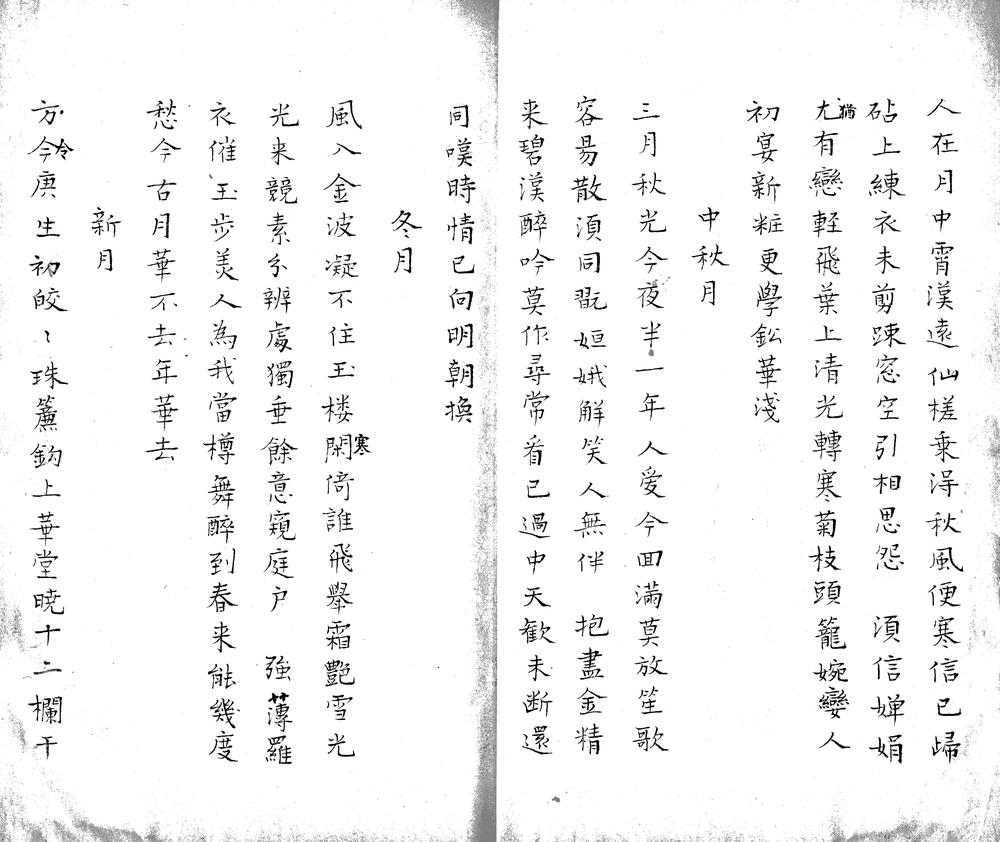 人在月中霄漢遠仙槎乗得秋風便寒信已歸
砧上練衣未剪踈窓空引相思怨　湏信嬋娟
尤猶有戀軽飛葉上清光轉寒菊枝頭籠婉孌人
初宴新粧更學鈆華淺
中秋月
三月秋光今夜半一年人愛今囬滿莫放笙歌
容昜散湏同翫姮娥解笑人無伴　抱盡金精
来碧漢醉吟莫作尋常看已過中天歡未断還
同嘆時情已向明朝換
冬月
風入金波凝不住玉楼閑寒倚誰飛舉霜艷雪光
光来競素分辨處獨垂餘意窺庭户　強薄羅
衣催玉步羙人為我當樽舞醉到春来能幾度
愁今古月華不去年華去
新月
方今冷庚生初皎〻珠簾鈎上華堂曉十二欄干